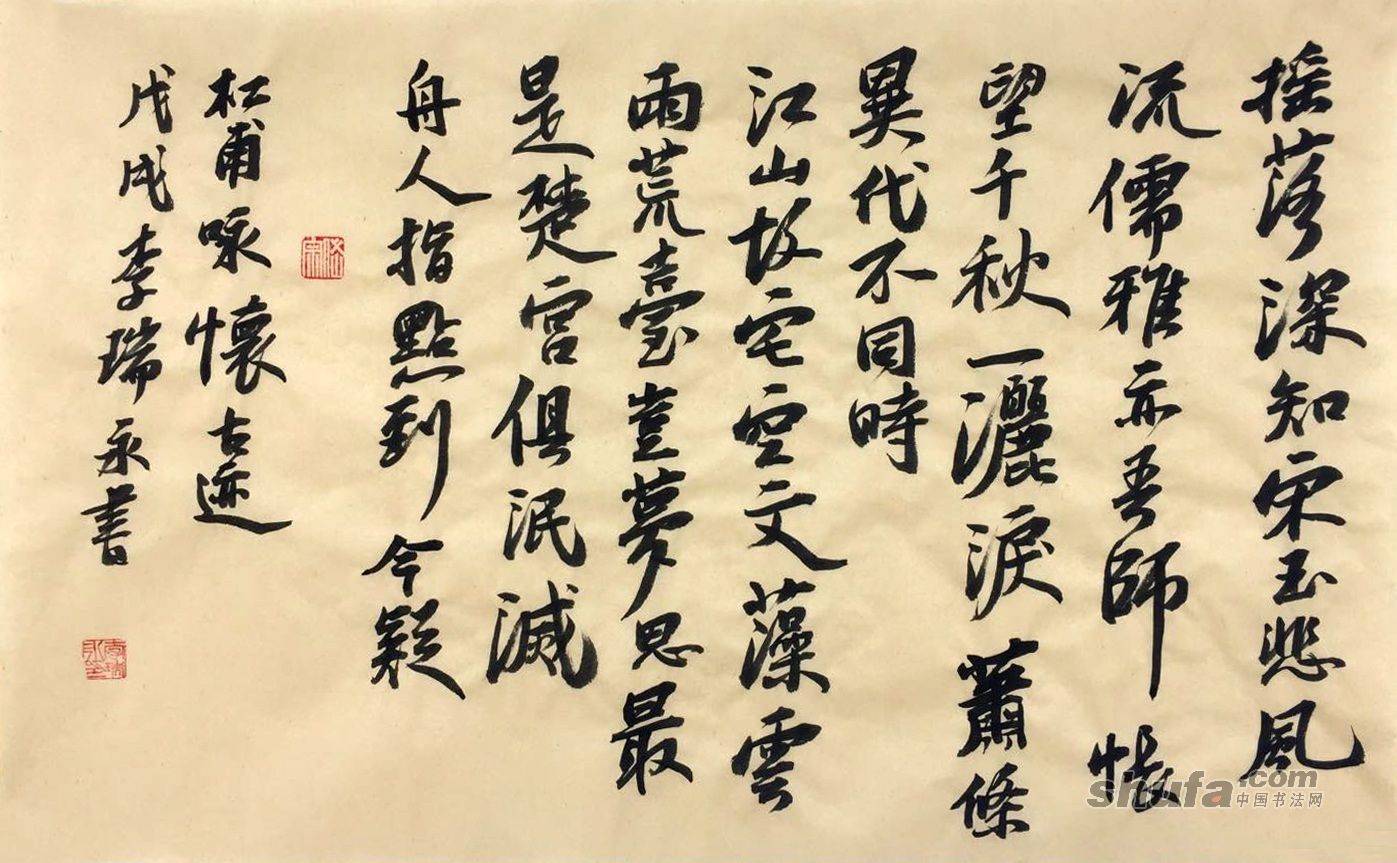 搖落深知宋玉悲風
流儒雅亦吾師悵
望千秋一灑淚蕭條
異代不同時
江山故宅空文藻雲
雨荒臺豈夢思最
是楚宮俱泯滅
舟人指點到今疑
杜甫咏懷古迹
戊戌李瑞永書
shufa.com
中国书法网